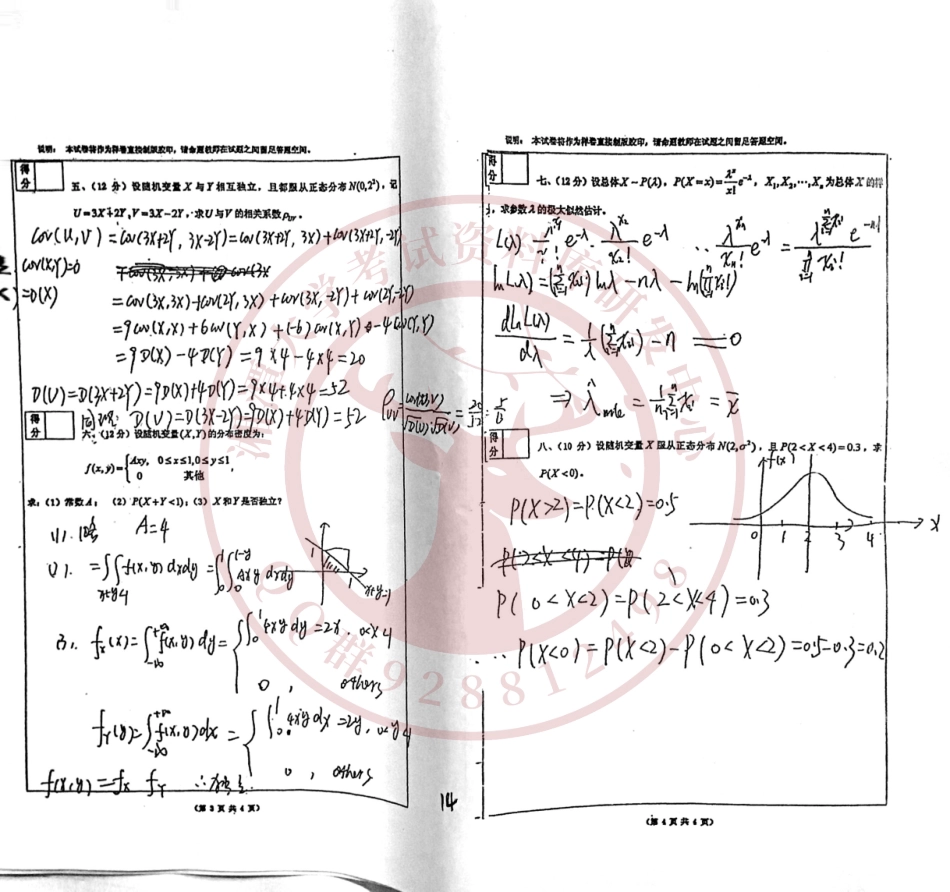 说明: 本试卷将作为样卷直接制版胶印,请命题教师在试题之间留足答题空间。
得分
五、(12 分)设随机变量 X 与 Y 相互独立,且都服从正态分布 N(0,2²),记
U=3X+2Y,V=3X−2Y,求U与V的相关系数ρ_UV。
Cov(U,V)=Cov(3X+2Y, 3X-2Y)=Cov(3X+2Y, 3X)+Cov(3X+2Y,-2Y)
Cov(X,Y)=0
=D(X)
=Cov(3X,3X)+Cov(2Y,3X)+Cov(3X,-2Y)+Cov(2Y,-2Y)
=9Cov(X,X)+6Cov(Y,X)+(-6)Cov(X,Y)-4Cov(Y,Y)
=9D(X)-4D(Y)=9×4-4×4=20
D(U)=D(3X+2Y)=9D(X)+4D(Y)=9×4+4×4=52
同理: D(V)=D(3X-2Y)=9D(X)+4D(Y)=52 ρ_UV=Cov(U,V)/√D(U)·√D(V)=20/52=5/13
得分
六、(12 分)设随机变量(X,Y)的分布密度为:
f(x,y)={Axy, 0≤x≤1,0≤y≤1
0 其他
求:(1) 常数A; (2) P(X+Y<1);(3) X和Y是否独立?
(1). A=4
(2). =∬f(x,y)dxdy=∫₀¹∫₀^(1-y) 4xy dxdy
x+y<1
1
1
x+y=1
(3). f_X(x)=∫_(-∞)^(+∞)f(x,y)dy={∫₀¹4xydy=2x, 0<x<1
0, others
f_Y(y)=∫_(-∞)^(+∞)f(x,y)dx={∫₀¹4xydx=2y, 0<y<1
0, others
f(x,y)=f_X f_Y ∴独立.
(第 3 页 共 4 页)
14
说明: 本试卷将作为样卷直接制版胶印,请命题教师在试题之间留足答题空间。
得分
七、(12 分)设总体X~P(λ),P(X=x)=λ^x/x! e^(-λ),X₁,X₂,⋯,Xₙ为总体X的样
,求参数λ的极大似然估计。
L(λ)=λ^(x₁)/x₁! e^(-λ)·λ^(x₂)/x₂! e^(-λ) ⋯ λ^(xₙ)/xₙ! e^(-λ)=λ^(∑_(i=1)^n xᵢ) e^(-nλ)/∏_(i=1)^n xᵢ!
ln L(λ)=(∑_(i=1)^n xᵢ)lnλ-nλ-ln(∏_(i=1)^n xᵢ!)
dLnL(λ)/dλ=1/λ(∑_(i=1)^n xᵢ)-n=0
⇒λ̂_mle=1/n∑_(i=1)^n xᵢ=x̄
得分
八、(10 分)设随机变量X服从正态分布N(2,σ²),且P(2<X<4)=0.3,求
P(X<0)。
f(x)
0 1 2 3 4 x
P(X>2)=P(X<2)=0.5
P(0<X<2)=P(2<X<4)=0.3
∴P(X<0)=P(X<2)-P(0<X<2)=0.5-0.3=0.2
(第 4 页 共 4 页)